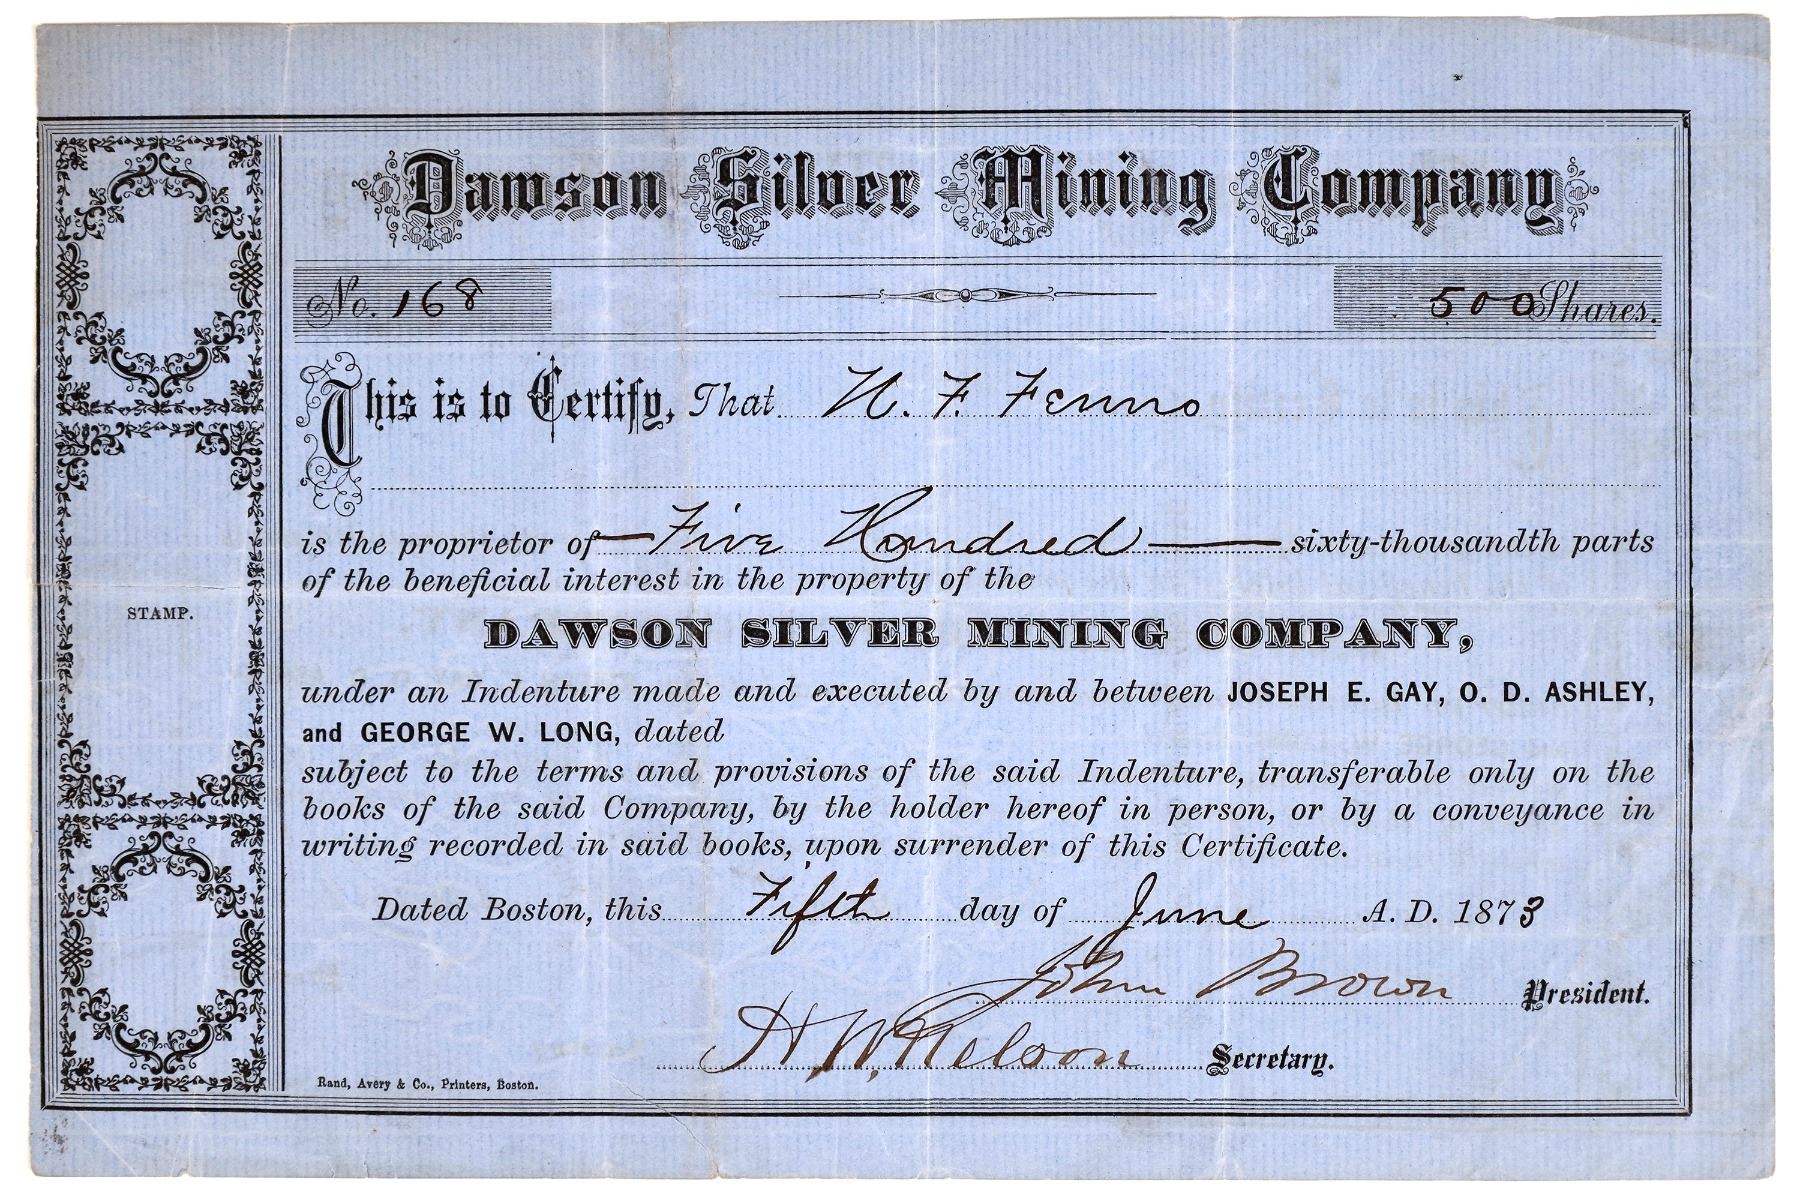 Dawson Silver Mining Company
No. 168
500 Shares.
This is to Certify, That N. F. Fenno
is the proprietor of — Five Hundred — sixty-thousandth parts
of the beneficial interest in the property of the
DAWSON SILVER MINING COMPANY,
under an Indenture made and executed by and between JOSEPH E. GAY, O. D. ASHLEY,
and GEORGE W. LONG, dated
subject to the terms and provisions of the said Indenture, transferable only on the
books of the said Company, by the holder hereof in person, or by a conveyance in
writing recorded in said books, upon surrender of this Certificate.
Dated Boston, this Fifth day of June A. D. 1873
John Brown President.
H. W. Nelson Secretary.
STAMP.
Rand, Avery & Co., Printers, Boston.